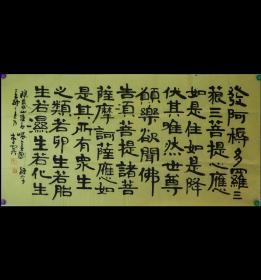 發阿耨多羅三
藐三菩提心應
如是住如是降
伏其唯然世尊
願樂欲聞佛
告須菩提諸菩
薩摩訶薩應如
是其所有眾生
之類若卵生若胎
生若濕生若化生